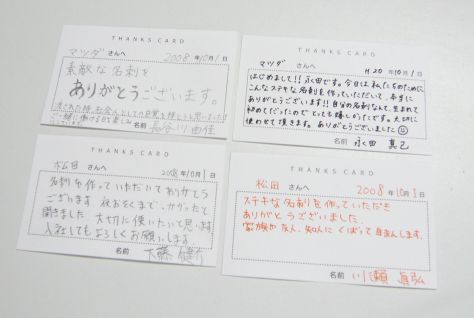 THANKS CARD
マツダ さんへ 2008年10月1日
素敵な名刺を
ありがとうございます。
名前 長谷川 由佳
THANKS CARD
マツダ さんへ H20年10月1日
はじめまして!!永田です。今日は私たちのために
こんなステキな名刺を作っていただいて、本当に
ありがとうございます!!自分の名刺なんて、生まれて
初めてだったのでとっても嬉しかったです。大切に
使わせて頂きます。ありがとうございました☺
名前 永田 真己
THANKS CARD
松田 さんへ 2008年10月1日
名刺を作っていただいてありがとう
ございます 夜おそくまで、かかったと
聞きました 大切に使いたいと思います
入社してもよろしくお願いします
名前
THANKS CARD
松田 さんへ 2008年10月1日
ステキな名刺を作っていただき
ありがとうございました。
家族や友人、知人にくばって自まんします。
名前 川瀬 眞弘